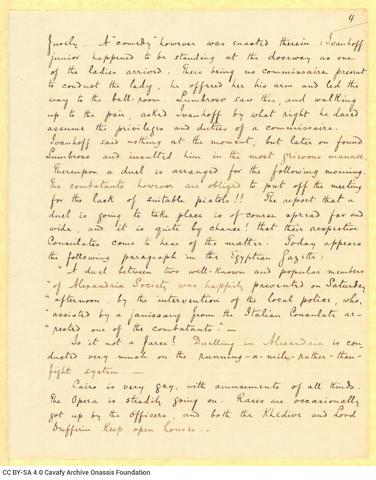 4
fusely. A "comedy" however was enacted therein: Ivanhoff
junior happened to be standing at the doorway as one
of the ladies arrived. There being no commissaire present
to conduct the lady, he offered her his arm and led the
way to the ball-room. Lumbroso saw this, and walking
up to the pair, asked Ivanhoff by what right he dared
assume the privileges and duties of a commissaire.
Ivanhoff said nothing at the moment, but later on found
Lumbroso and insulted him in the most grievous manner.
Thereupon a duel is arranged for the following morning.
The combatants however are obliged to put off the meeting
for the lack of suitable pistols!! The report that a
duel is going to take place is of course spread far and
wide, and it is quite by chance! that their respective
Consulates come to hear of the matter. Today appears
the following paragraph in the Egyptian Gazette:
"A duel between two well-known and popular members
"of Alexandria Society was happily prevented on Saturday
"afternoon, by the intervention of the local police, who,
"assisted by a janissary from the Italian Consulate ar-
"rested one of the combatants." —
Is it not a farce! Duelling in Alexandria is con
ducted very much on the running-a-mile-rather-than-
fight system. —
Cairo is very gay, with amusements of all kinds.
The Opera is steadily going on. Races are occasionally
got up by the Officers, and both the Khedive and Lord
Dufferin keep open houses. -
CC BY-SA 4.0 Cavafy Archive Onassis Foundation